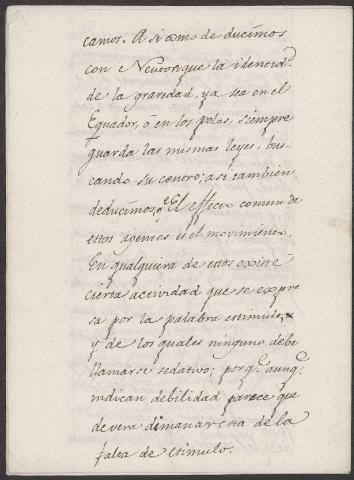 camos. Asi como deducimos
con Neuton que la identid.ᵈ
de la gravedad, ya sea en el
Equador, ó en los polos, siempre
guarda las mismas leyes, bus-
cando su centro; asi tambien
deducimos, qᵉ El effecto comun de
estos agentes es el movimiento.
En qualquiera de estos existe
cierta actividad que se expre
sa por la palabra estimulo,
y de los quales ninguno debe
llamarse sedativo; porq.ᵉ aunq.ᵉ
indican debilidad parece que
devera dimanar esta de la
falta de estimulo.